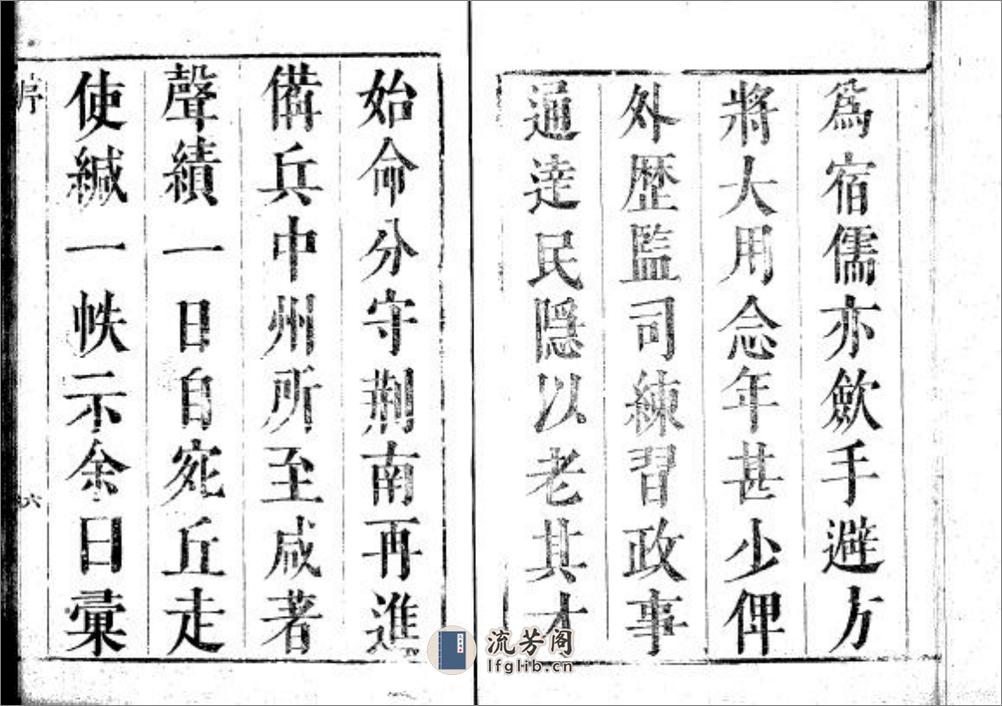 爲宿儒亦歛手避方
將大用念年甚少俾
外歷監司練習政事
通達民隱以老其才
始命分守荆南再進
備兵中州所至咸著
聲績一日自宛丘走
使緘一帙示余曰彙
序
六
流芳阁
lfglib.cn